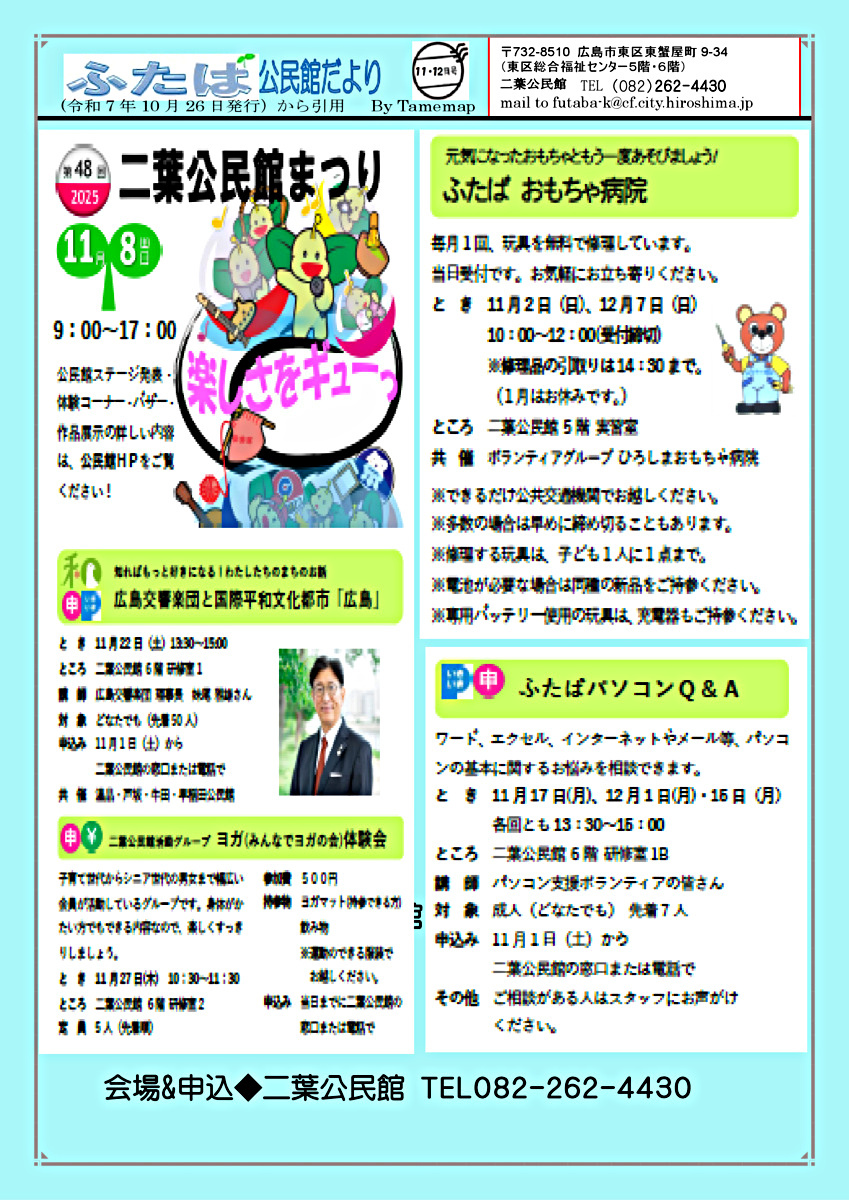 ふたば公民館だより
11・12月号
(令和7年10月26日発行) から引用 By Tamemap
〒732-8510 広島市東区東蟹屋町 9-34
(東区総合福祉センター5階・6階)
二葉公民館 TEL (082)262-4430
mail to futaba-k@cf.city.hiroshima.jp
第48回
2025
二葉公民館まつり
11月8日
9:00〜17:00
公民館ステージ発表・
体験コーナー・バザー・
作品展示の詳しい内容
は、公民館HPをご覧
ください!
楽しさをギューっ
知ればもっと好きになる!わたしたちのまちのお話
申
広島交響楽団と国際平和文化都市「広島」
と き 11月22日(土) 13:30〜15:00
ところ 二葉公民館 6階 研修室1
講 師 広島交響楽団 理事長
対 象 どなたでも (先着50人)
申込み 11月1日(土) から
二葉公民館の窓口または電話で
共 催 温品・戸坂・牛田・早稲田公民館
申 ¥ 二葉公民館活動グループ ヨガ(みんなでヨガの会)体験会
子育て世代からシニア世代の男女まで幅広い
会員が活動しているグループです。身体がか
たい方でもできる内容なので、楽しくすっき
りしましょう。
と き 11月27日(木) 10:30〜11:30
ところ 二葉公民館 6階 研修室2
定 員 5人 (先着順)
参加費 500円
持参物 ヨガマット(持参できる方)
飲み物
※運動のできる服装で
お越しください。
申込み 当日までに二葉公民館の
窓口または電話で
元気になったおもちゃともう一度あそびましょう!
ふたば おもちゃ病院
毎月1回、玩具を無料で修理しています。
当日受付です。お気軽にお立ち寄りください。
と き 11月2日(日)、12月7日(日)
10:00〜12:00(受付締切)
※修理品の引取りは14:30まで。
(1月はお休みです。)
ところ 二葉公民館 5階 実習室
共 催 ボランティアグループ ひろしまおもちゃ病院
※できるだけ公共交通機関でお越しください。
※多数の場合は早めに締め切ることもあります。
※修理する玩具は、子ども1人に1点まで。
※電池が必要な場合は同種の新品をご持参ください。
※専用バッテリー使用の玩具は、充電器もご持参ください。
申 ふたばパソコンQ&A
ワード、エクセル、インターネットやメール等、パソコ
ンの基本に関するお悩みを相談できます。
と き 11月17日(月)、12月1日(月)・15日(月)
各回とも13:30〜15:00
ところ 二葉公民館 6階 研修室1B
講 師 パソコン支援ボランティアの皆さん
対 象 成人(どなたでも) 先着7人
申込み 11月1日(土)から
二葉公民館の窓口または電話で
その他 ご相談がある人はスタッフにお声がけ
ください。
会場&申込◆二葉公民館 TEL082-262-4430